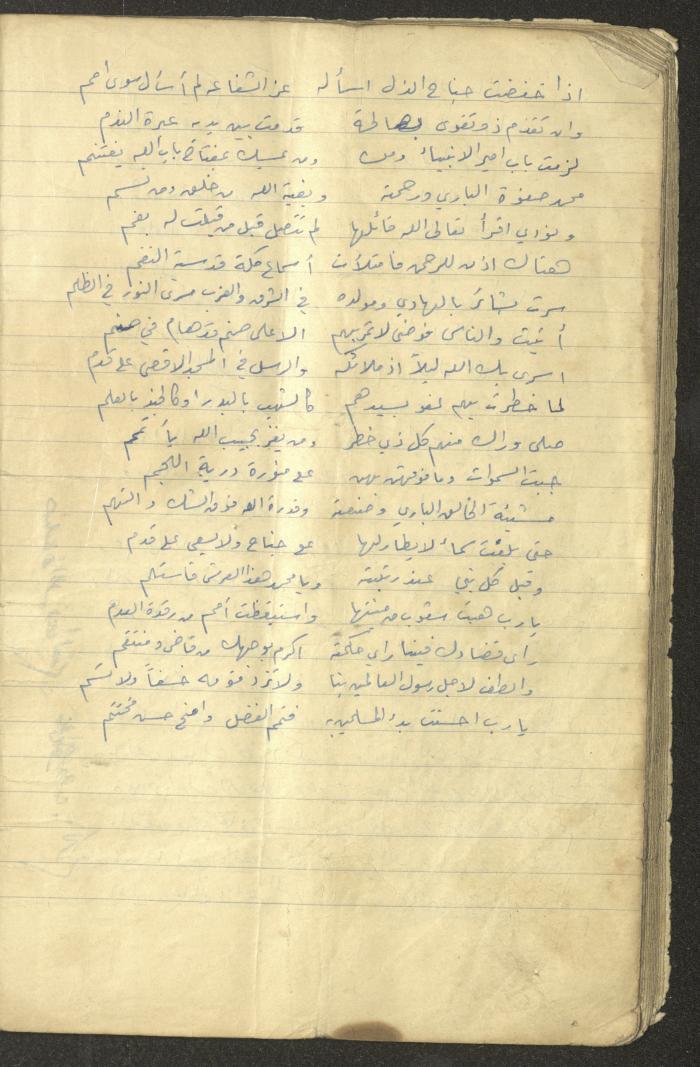 اذا خفضت جناح الذل اسأله عز الشفاعه لم أسأل سوى امم
وان تقدم ذو تقوى بصالحة قدمت بين يديه عبرة الندم
لزمت باب امير الانبياء ومن يمسك بمفتاح باب الله يغتنم
محمد صفوة الباري ورحمة وبغية الله من خلق ومن نسم
ونودي اقرأ تعالى الله قائلها لم تتصل قبل من قيلت له بفم
هناك اذن للرحمن فامتلأت أسماع مكة قدسية النغم
سرت بشائر بالهادي ومولده في الشرق والغرب مسرى النور في الظلم
أتيت والناس فوضى لا تمر بهم الا على صنم قد هام في صنم
اسرى بك الله ليلاً اذ ملائكه والرسل في المسجد الاقصى على قدم
لما خطرت بهم بسيدهم كالشهب بالبدر او كالجند بالعلم
صلى وراك منهم كل ذي خطر ومن يفز بحبيب الله يأتمم
جبت السموات وما فوقهن بهن على منورة درية اللجم
مشيئة الخالق الباري وصنعته وقدرة الله فوق الشك والتهم
حتى بلغت سماء لا يطار لها على جناح ولا يسعى على قدم
وقيل كل نبي عند رتبته ويا محمد هذا العرش فاستلم
يارب هبت شعوب من منيتها واستيقظت أمم من رقدة العدم
رأى قضاءك فينا راي حكمته اكرم بوجهك من قاض ومنتقم
والطف لاجل رسول العالمين بنا ولا تزد قومه خسفاً ولا تسم
يارب احسنت بدء المسلمين به فتمم الفضل وامنح حسن مختتم